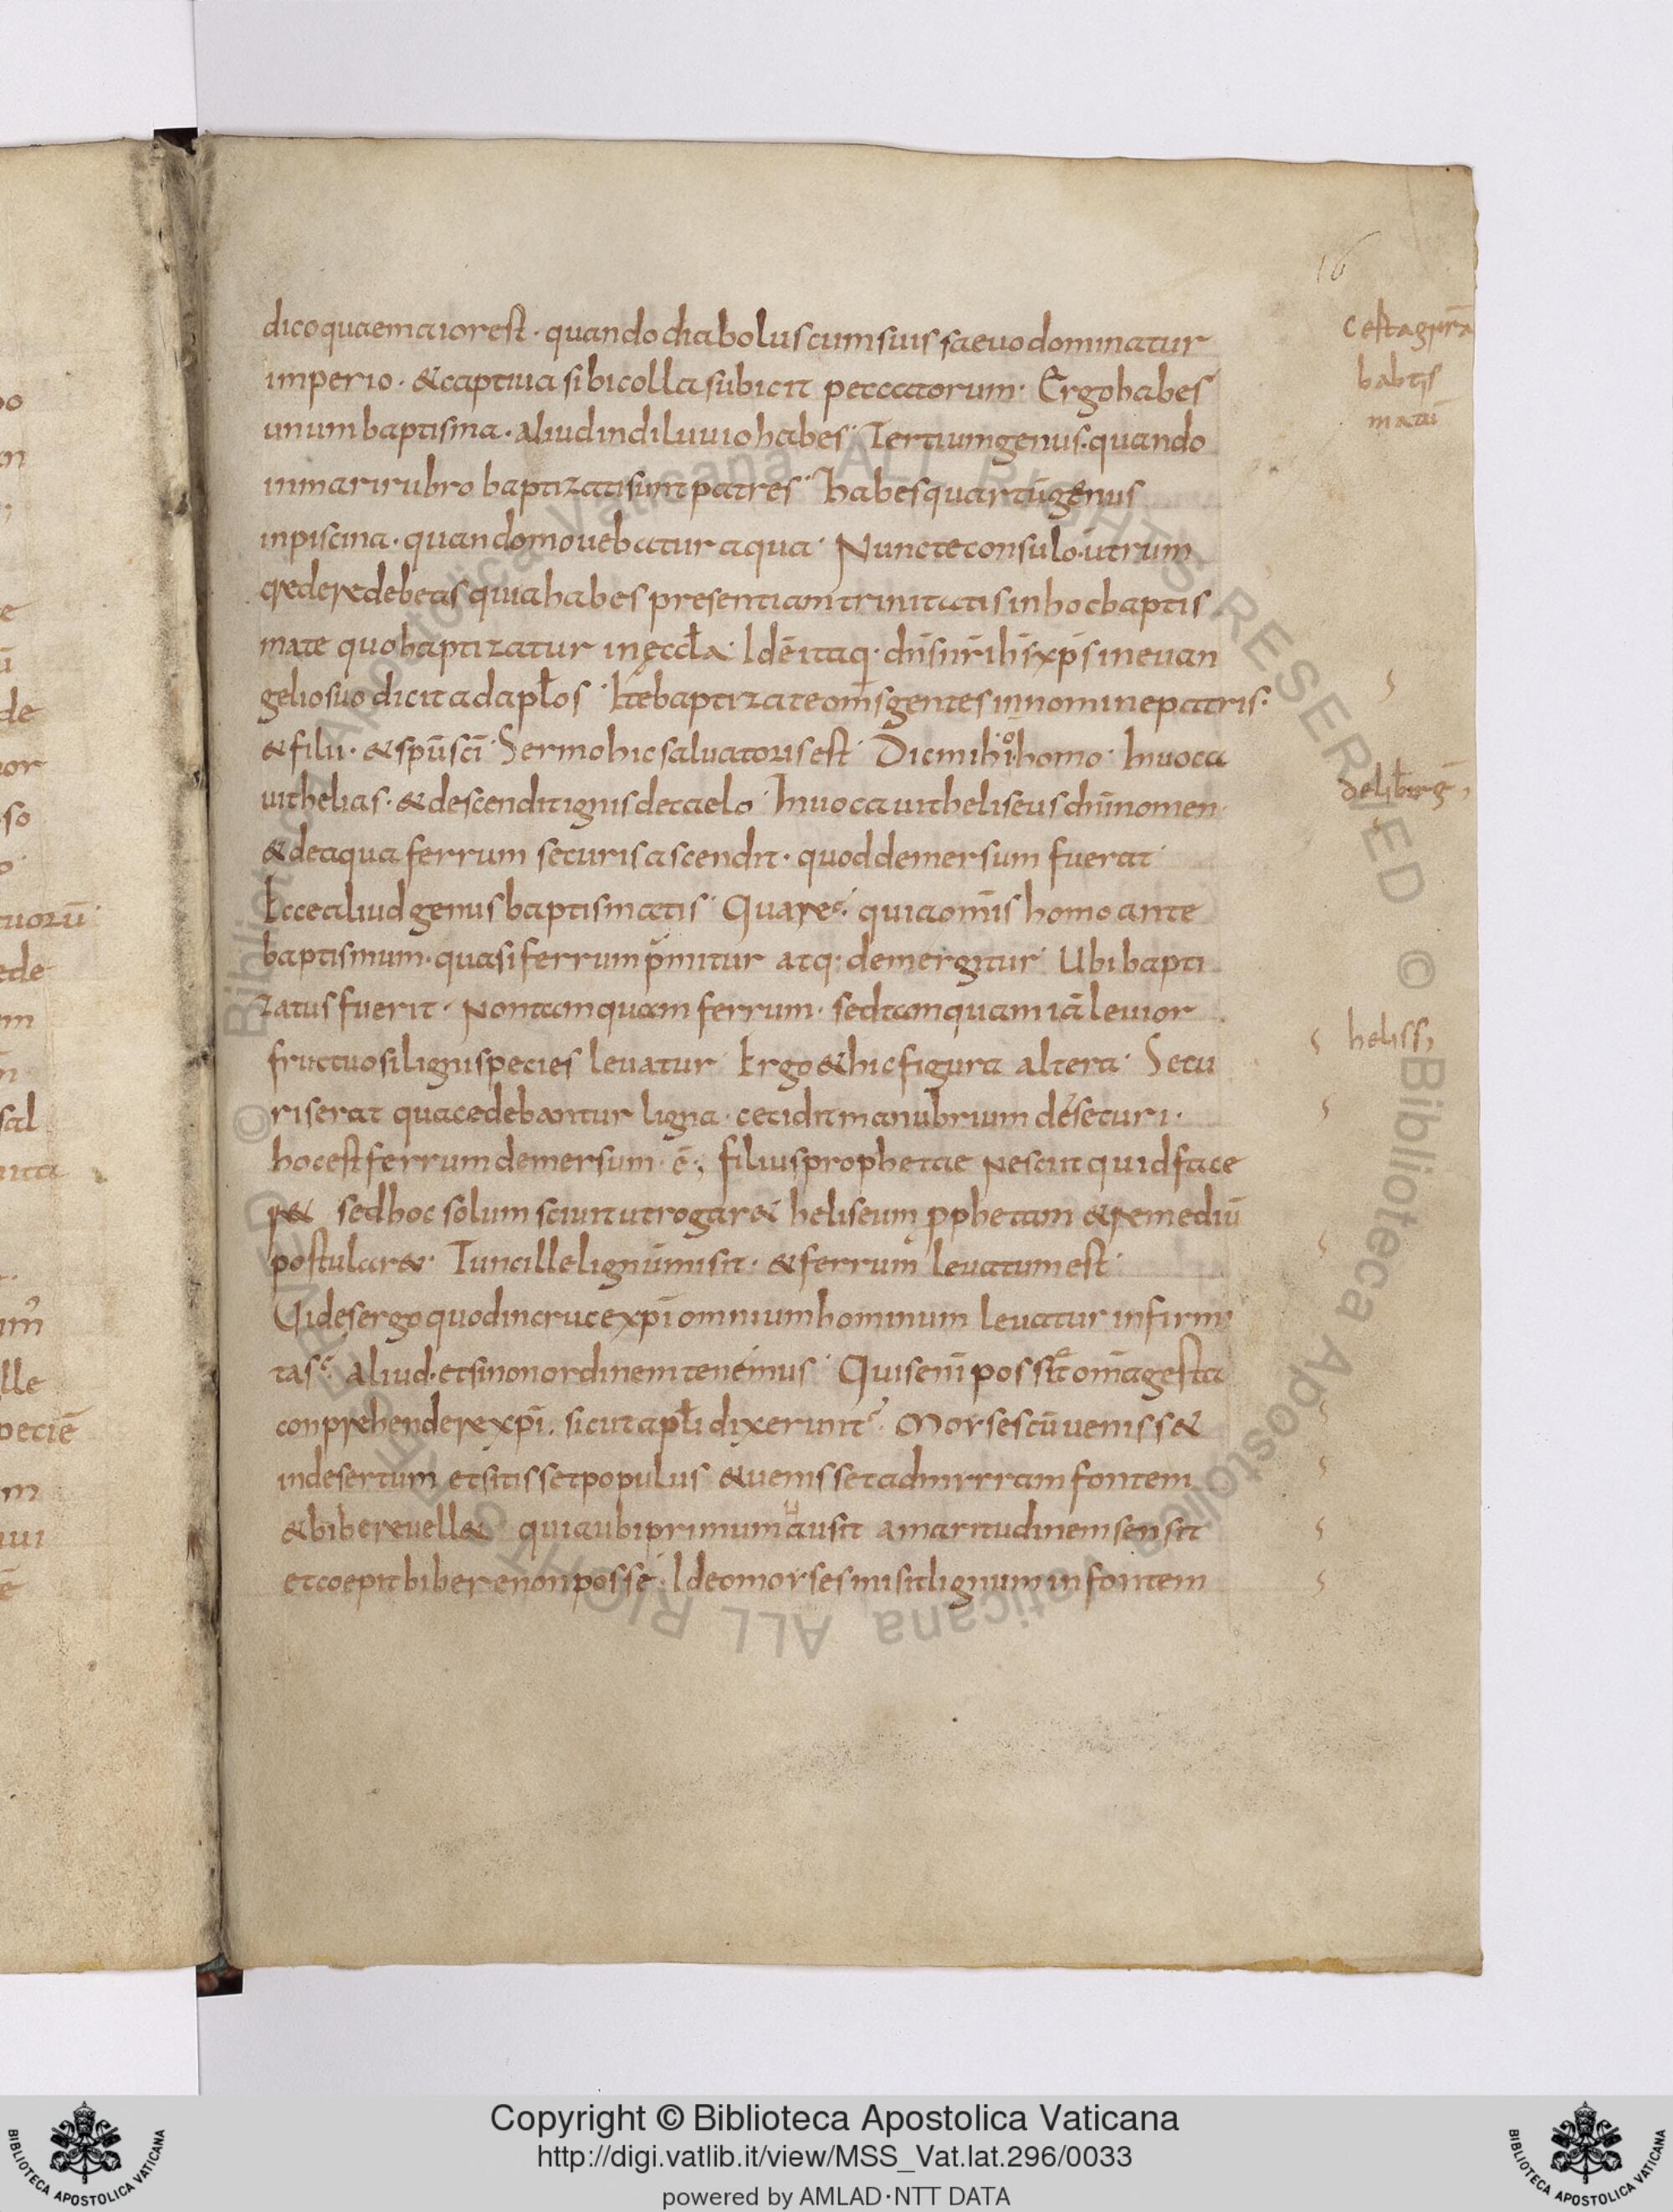 16
dico quae maior est · quando diabolus cum suis saeuo dominatur
imperio · & captiua sibi colla subicit peccatorum · Ergo habes
unum baptisma · aliud in diluuio habes · Tertium genus · quando
in mari rubro baptizati sunt patres · habes quartū genus
in piscina · quando mouebatur aqua · Nunc te consulo · utrum
credere debeas quia habes presentiam trinitatis in hoc baptis
mate quo baptizatur in ęccła · Idē itaq · dn̄s nr̄ ih̄s xp̄s in euan
gelio suo dicit ad apłos · Ite baptizate om̄s gentes in nomine patris ·
& filii · & sp̄u sc̄i · Sermo hic saluatoris est · Dic mihi o homo · Inuoca
uit helias · & descendit ignis de caelo · Inuocauit heliseus dn̄i nomen
& de aqua ferrum securis ascendit · quod demersum fuerat ·
Ecce aliud genus baptismatis · Quare · quia omīs homo ante
baptismum · quasi ferrum p̄mitur atq · demergitur · Ubi bapti
zatus fuerit · Non tamquam ferrum · sed tamquam iā leuior
fructuosi ligni species leuatur · Ergo & hic figura altera · Secu
ris erat qua cedebantur ligna · cecidit manubrium de securi ·
hoc est ferrum demersum · ē ; filius prophetae Nesciit quid face
r& sed hoc solum sciuit ut rogar& heliseum pphetam & remediū
postular& · Tunc ille lignū misit · & ferrum leuatum est ·
Uides ergo quod in cruce xp̄i omnium hominum leuatur infirmi
tas · aliud · etsi non ordinem tenemus · Quis enī possit om̄a gesta
conprehendere xp̄i · sicut apłi dixerunt · Moyses cū ueniss&
in desertum et sitisset populus & uenisset ad mirram fontem
& bibere uell& quia ubi primum ausit amaritudinem sensit
et coepit bibere non posse · Ideo moyses misit lignum in fontem
babtis
matū
heliss,
Copyright © Biblioteca Apostolica Vaticana
http://digi.vatlib.it/view/MSS_Vat.lat.296/0033
powered by AMLAD·NTT DATA
BIBLIOTECA APOSTOLICA VATICANA
BIBLIOTECA APOSTOLICA VATICANA